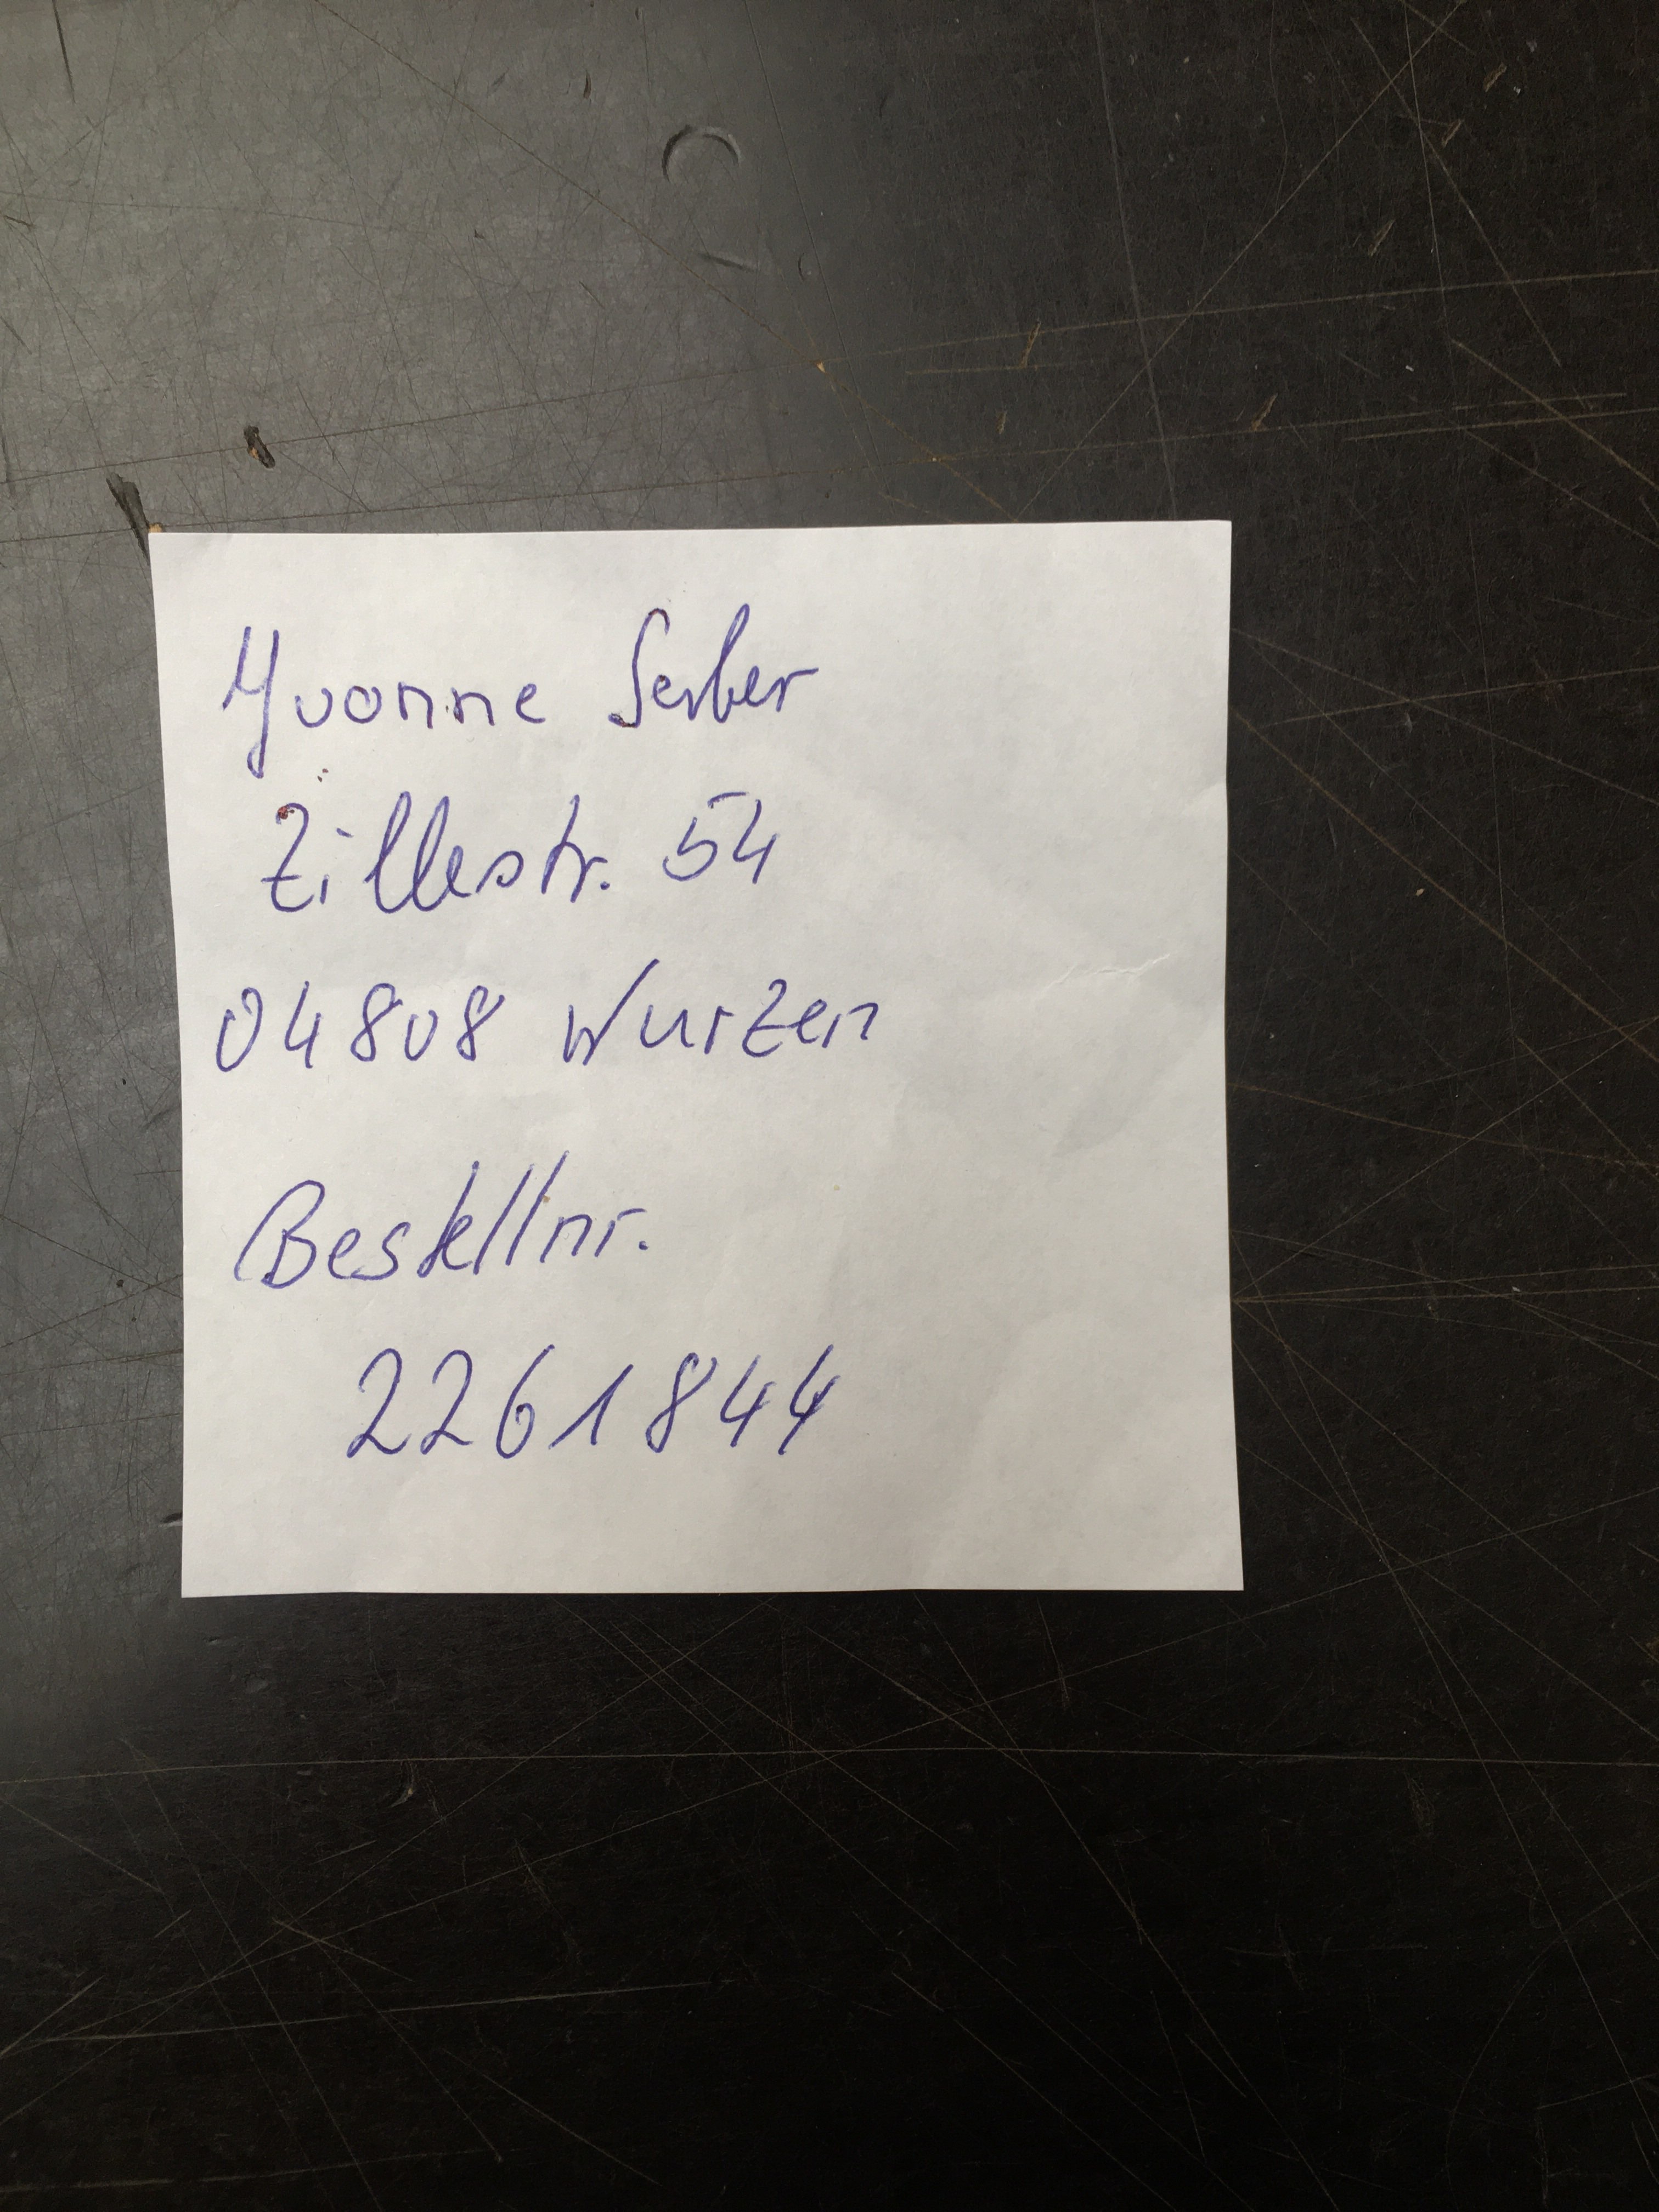 Yvonne Serber
Zillestr. 54
04808 Wurzen
Bestellnr.
2261844